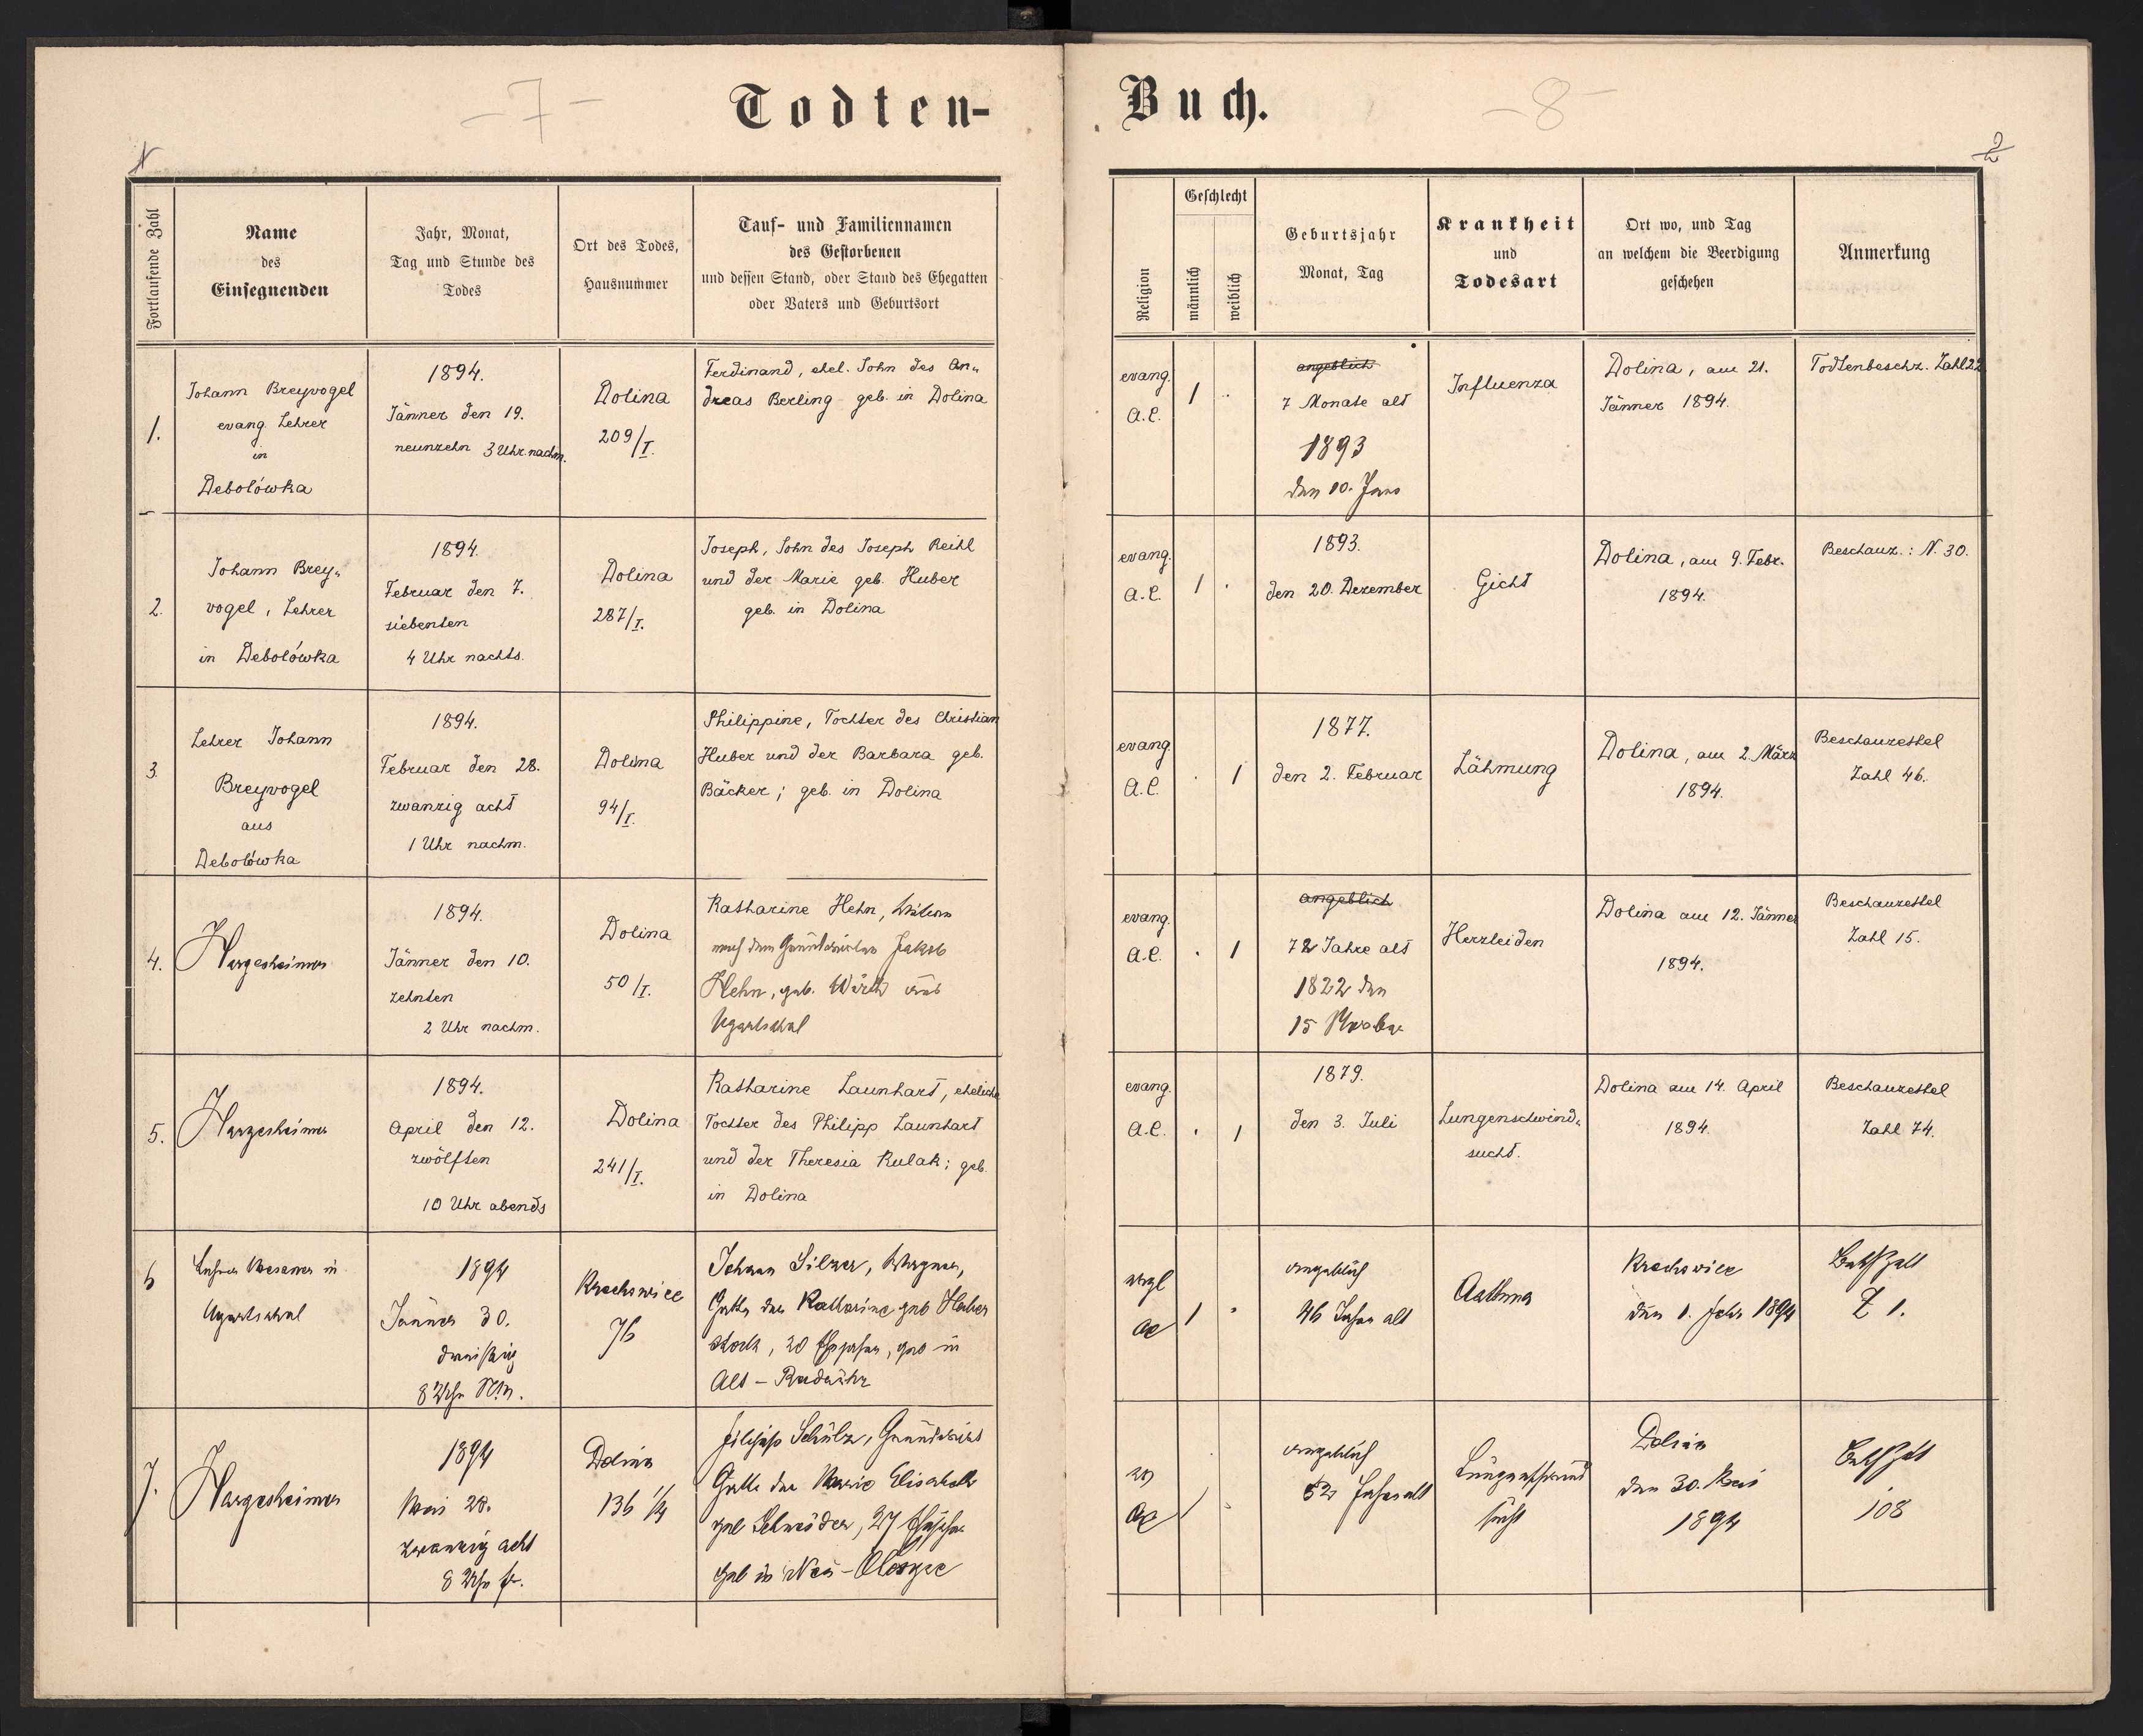 - 7 -
Todten-
Buch.
- 8 -
Fortlaufende Zahl
Name
des
Einsegnenden
Jahr, Monat,
Tag und Stunde des
Todes
Ort des Todes,
Hausnummer
Tauf- und Familiennamen
des Gestorbenen
und dessen Stand, oder Stand des Ehegatten
oder Vaters und Geburtsort
Religion
Geschlecht
männlich
weiblich
Geburtsjahr
Monat, Tag
Krankheit
und
Todesart
Ort wo, und Tag
an welchem die Beerdigung
geschehen
Anmerkung
1.
Johann Breyvogel
evang. Lehrer
in
Debolówka
1894.
Jänner den 19.
neunzehn 3 Uhr nachm.
Dolina
209/I.
Ferdinand, ehel. Sohn des An„
dreas Berling geb. in Dolina
evang.
A.C.
1
angeblich
7 Monate alt
1893
den 10. Juno
Influenza
Dolina, am 21.
Jänner 1894.
Todtenbeschz. Zahl 22
2.
Johann Brey„
vogel, Lehrer
in Debolówka
1894.
Februar den 7.
siebenten
4 Uhr nachts.
Dolina
287/I.
Joseph, Sohn des Joseph Reihl
und der Marie geb. Huber
geb. in Dolina
evang.
A.C.
1
1893.
den 20. Dezember
Gicht
Dolina, am 9. Febr.
1894.
Beschauz.: N. 30.
3.
Lehrer Johann
Breyvogel
aus
Debolówka
1894.
Februar den 28.
zwanzig acht
1 Uhr nachm.
Dolina
94/I.
Philippine, Tochter des Christian
Huber und der Barbara geb.
Bäcker; geb. in Dolina
evang.
A.C.
1
1877.
den 2. Februar
Lähmung
Dolina, am 2. März
1894.
Beschauzettel
Zahl 46.
4.
Hargesheimer
1894.
Jänner den 10.
zehnten
2 Uhr nachm.
Dolina
50/I.
Katharine Hehn, Witwe
nach dem Grundwirten Jakob
Hehn, geb. Würth aus
Ugartsthal
evang.
A.C.
1
angeblich
72 Jahre alt
1822 den
15
Herzleiden
Dolina am 12. Jänner
1894.
Beschauzettel
Zahl 15.
5.
Hargesheimer
1894.
April den 12.
zwölften
10 Uhr abends
Dolina
241/I.
Katharine Launhart, eheliche
Tochter des Philipp Launhart
und der Theresia Kulak; geb.
in Dolina
evang.
A.C.
1
1879.
den 3. Juli
Lungenschwind„
sucht.
Dolina am 14. April
1894.
Beschauzettel
Zahl 74.
6
Lehrer in
Ugartsthal
1894
Jänner 30.
dreißig
8 Uhr Nm.
Krechowice
76
Johann Silzer, Wagner,
Gatte der Katharine geb Haber
stock, 20 Ehejahre, geb in
Alt-
evgl
AC
1
angeblich
46 Jahre alt
Asthma
Krechowice
den 1. Febr 1894
Z 1.
7.
Hargesheimer
1894
Mai 28.
zwanzig acht
8 Uhr fr.
Dolina
136
Filipp Schulz, Grundwirt
Gatte der Marie Elisabeth
geb Schneider, 27 Ehejahre
geb in Neu-
ev
AC
1
angeblich
52 Jahre alt
Lungenschwind
sucht
Dolina
den 30. Mai
1894
108